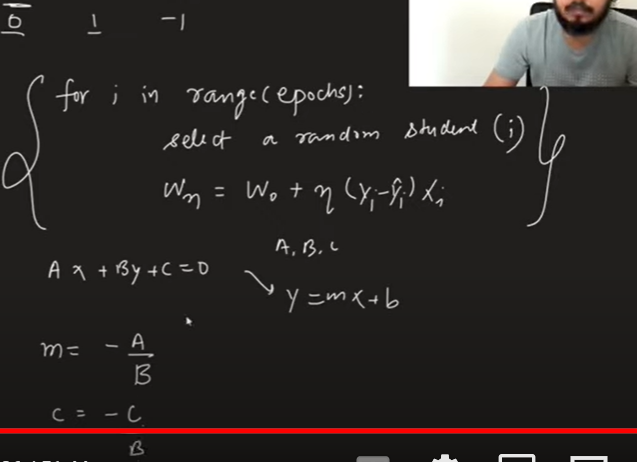 0 1 -1
for i in range(epochs):
select a random student (i)
Wn = Wo + η (yi - ŷi) xi
A, B, C
Ax + By + C = 0
y = mx + b
m = - A/B
c = - C/B